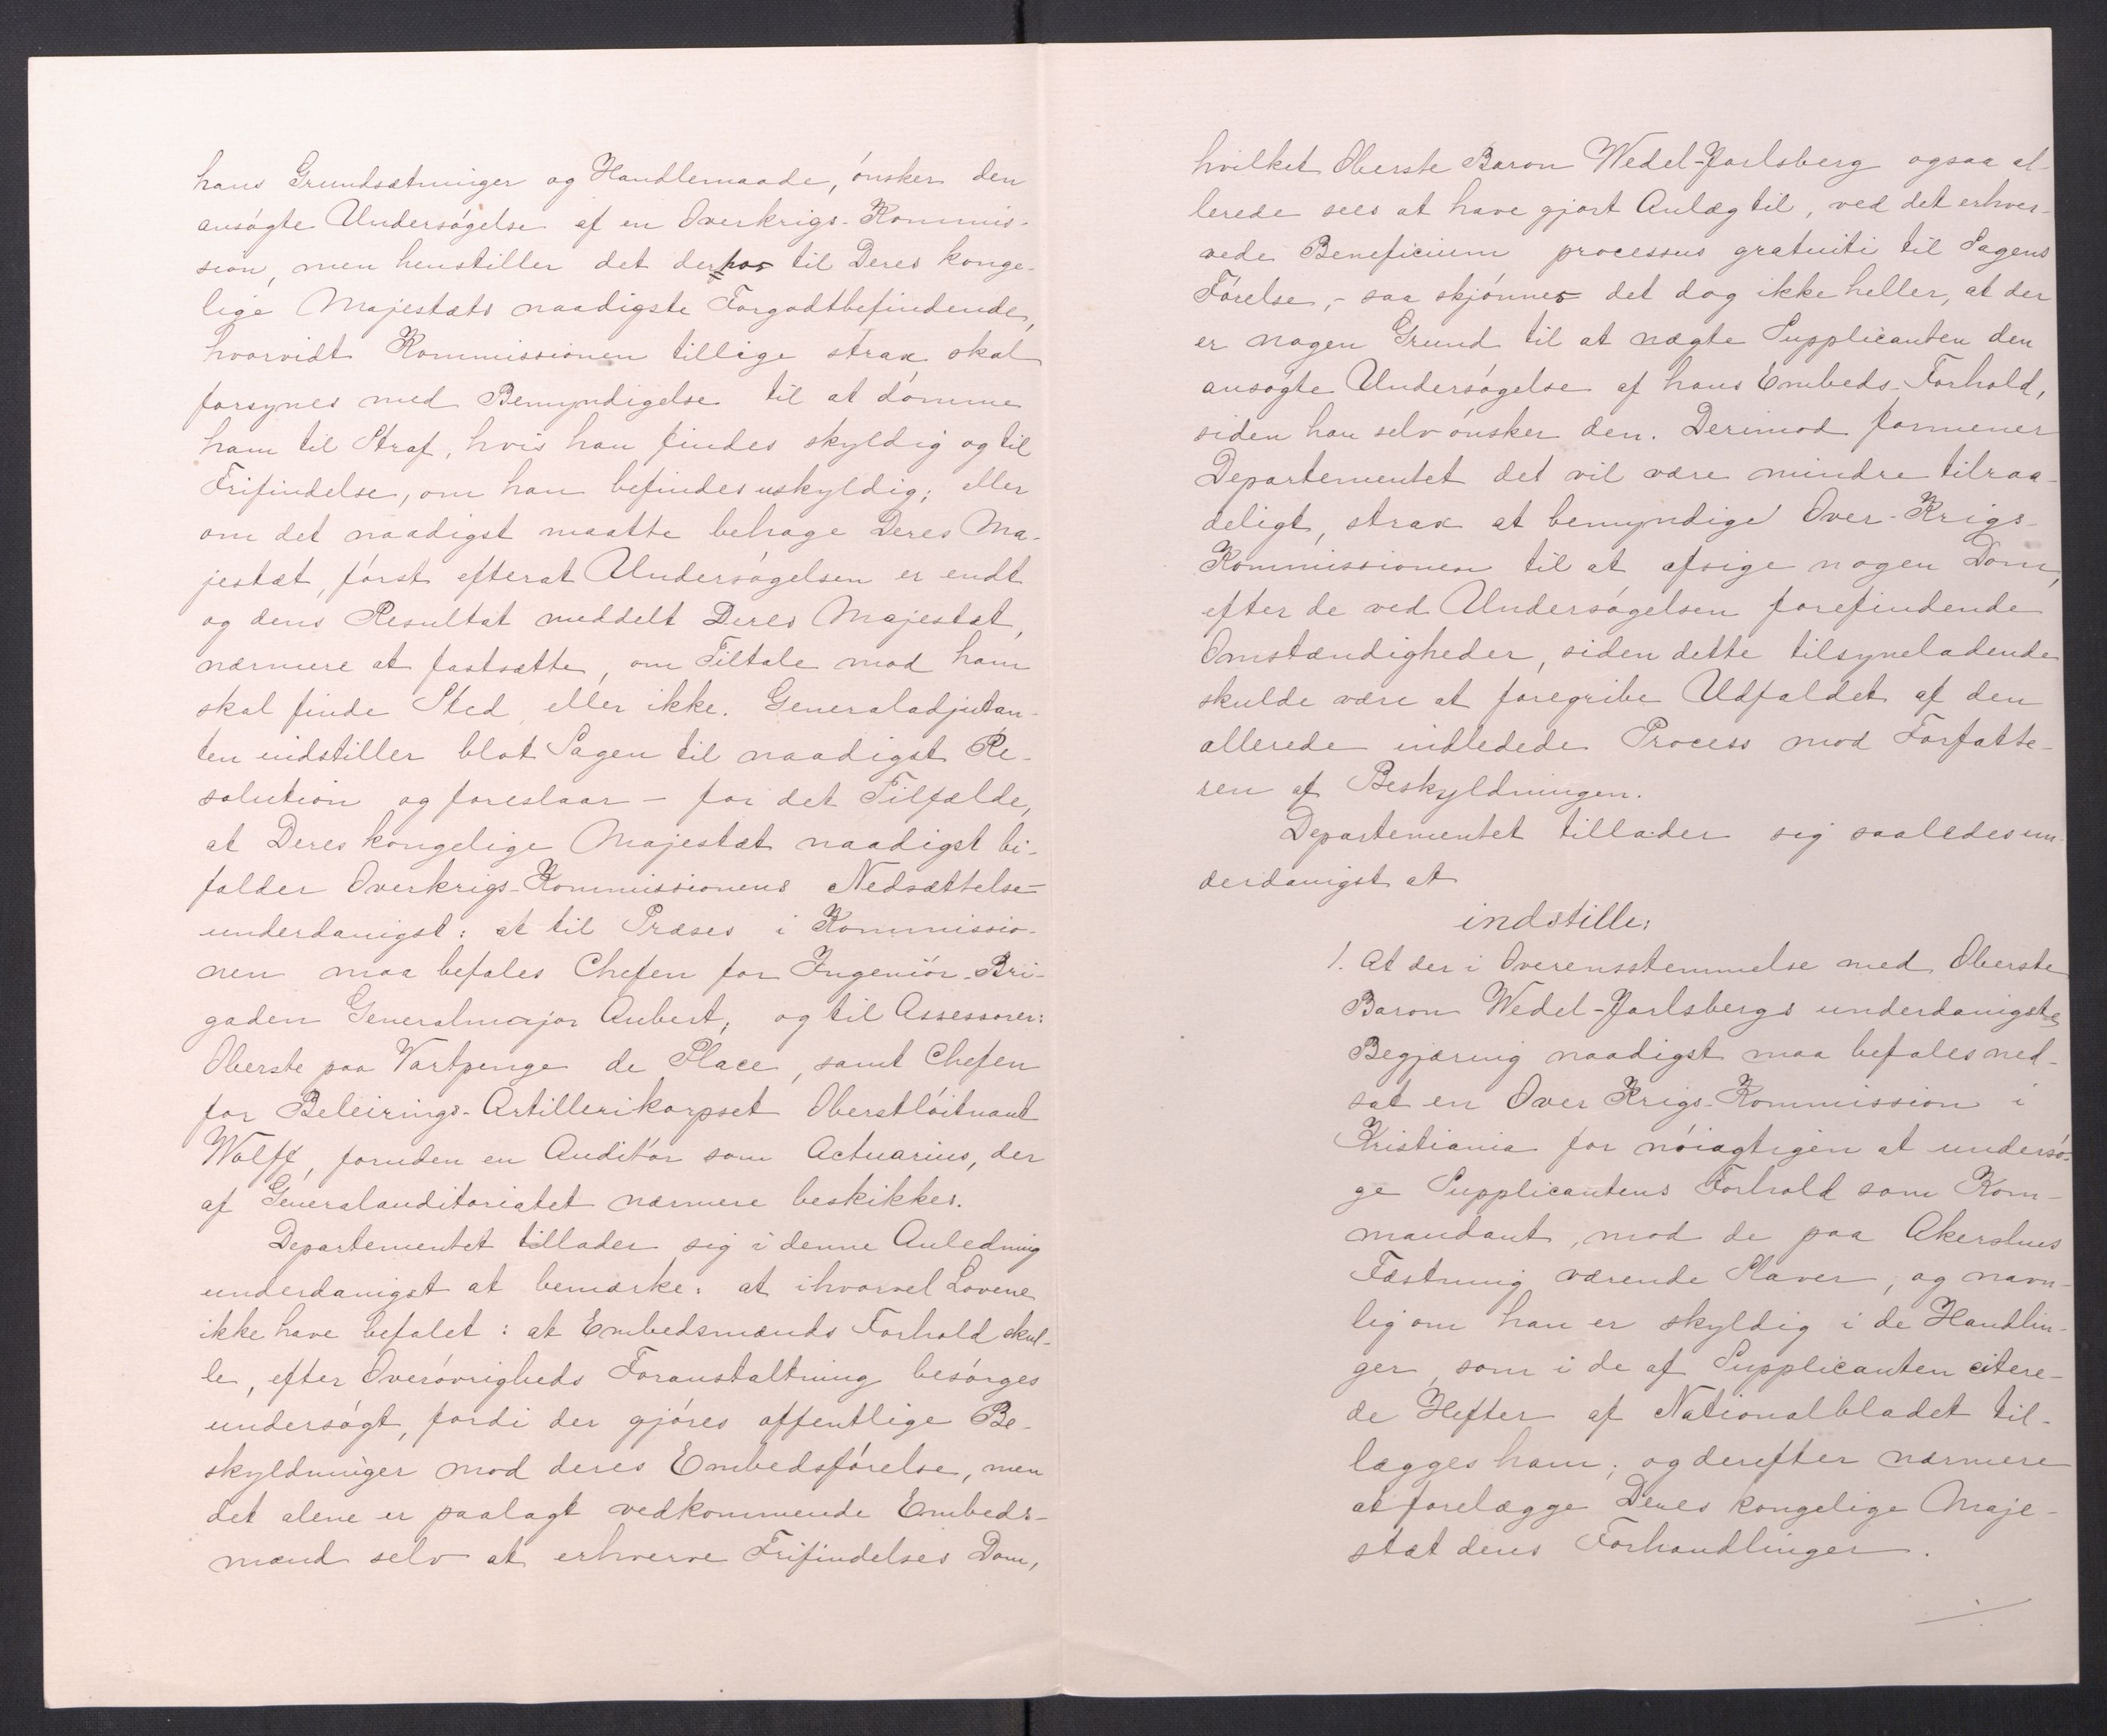 hans Grundsætninger og Handlemaade, ónsker den
ansógte Undersógelse af en Overkrigs-Kommis-
sion, men henstiller det derhos til Deres konge-
lige Majestæts naadigste Forgodtbefindende,
hvorvidt Kommissionen tillige strax skal
forsynes med Bemyndigelse til at dómme
ham til Straf, hvis han findes skyldig og til
Frifindelse, om han befindes uskyldig; eller
om det naadigst maatte behage Deres Ma-
jestæt, fórst efterat Undersógelsen er endt
og dens Resultat meddelt Deres Majestæt,
nærmere at fastsætte, om Tiltale mod ham
skal finde Sted eller ikke. Generaladjutan-
ten indstiller blot Sagen til naadigst Re-
solution og foreslaar - for det Tilfælde,
at Deres kongelige Majestæt naadigst bi-
falder Overkrigs-Kommissionens Nedsættelse-
underdanigst: at til Præses i Kommissio-
nen maa befales Chefen for Ingeniór-Bri-
gaden Generalmajor Aubert, og til Assessorer:
Oberste paa Vartpenge de Place, samt Chefen
for Beleirings-Artillerikorpset Oberstlóitnant
Wolff, foruden en Auditór som Actuarius, der
af Generalauditoriatet nærmere beskikkes.
Departementet tillader sig i denne Anledning
underdanigst at bemærke: at ihvorvel Lovene
ikke have befalet: at Embedsmænds Forhold skul-
le, efter Overóvrigheds Foranstaltning besórges
undersógt, fordi der gjóres offentlige Be-
skyldninger mod deres Embedsfórelse, men
det alene er paalagt vedkommende Embeds-
mænd selv at erhverve Frifindelses Dom,
hvilket Oberste Baron Wedel-Jarlsberg ogsaa al-
lerede sees at have gjort Anlæg til, ved det erhver-
vede Beneficium processus gratuiti til Sagens
Fórelse, - saa skjónnes det dog ikke heller, at der
er nogen Grund til at nægte Supplicanten den
ansógte Undersógelse af hans Embeds-Forhold,
siden han selv ónsker den. Derimod formener
Departementet det vil være mindre tilraa-
deligt, strax at bemyndige Over-Krigs-
Kommissionen til at afsige nogen Dom,
efter de ved Undersógelsen forefindende
Omstændigheder, siden dette tilsyneladende
skulde være at foregribe Udfaldet af den
allerede indledede Process mod Forfatte-
ren af Beskyldningen.
Departementet tillader sig saaledes un-
derdanigst at
indstille:
1. At der i Overensstemmelse med Oberste
Baron Wedel-Jarlsbergs underdanigste
Begjæring naadigst maa befales ned-
sat en Over Krigs-Kommission i
Kristiania for nóiagtigen at undersó-
ge Supplicantens Forhold som Kom-
mandant, mod de paa Akershus
Fæstning værende Slaver, og navn-
lig om han er skyldig i de Handlin-
ger, som i de af Supplicanten citere-
de Hefter af Nationalbladet til-
lægges ham; og derefter nærmere
at forelægge Deres kongelige Maje-
stæt dens Forhandlinger.